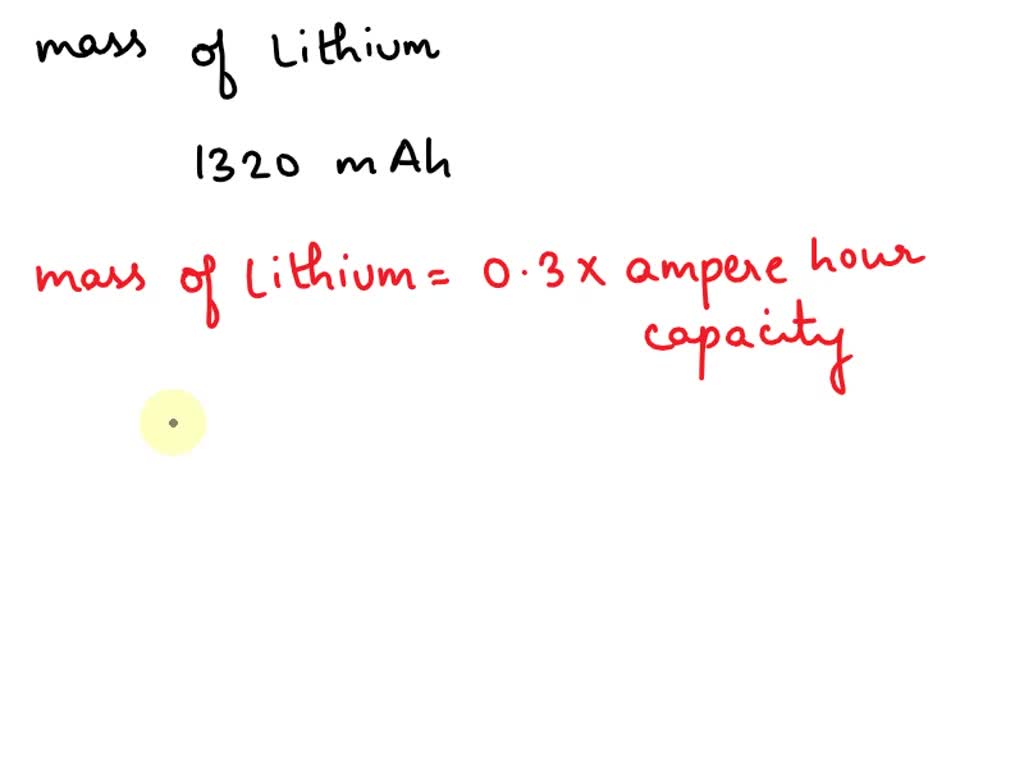 mass of Lithium
1320 mAh
mass of Lithium = 0.3 x ampere hour
capacity